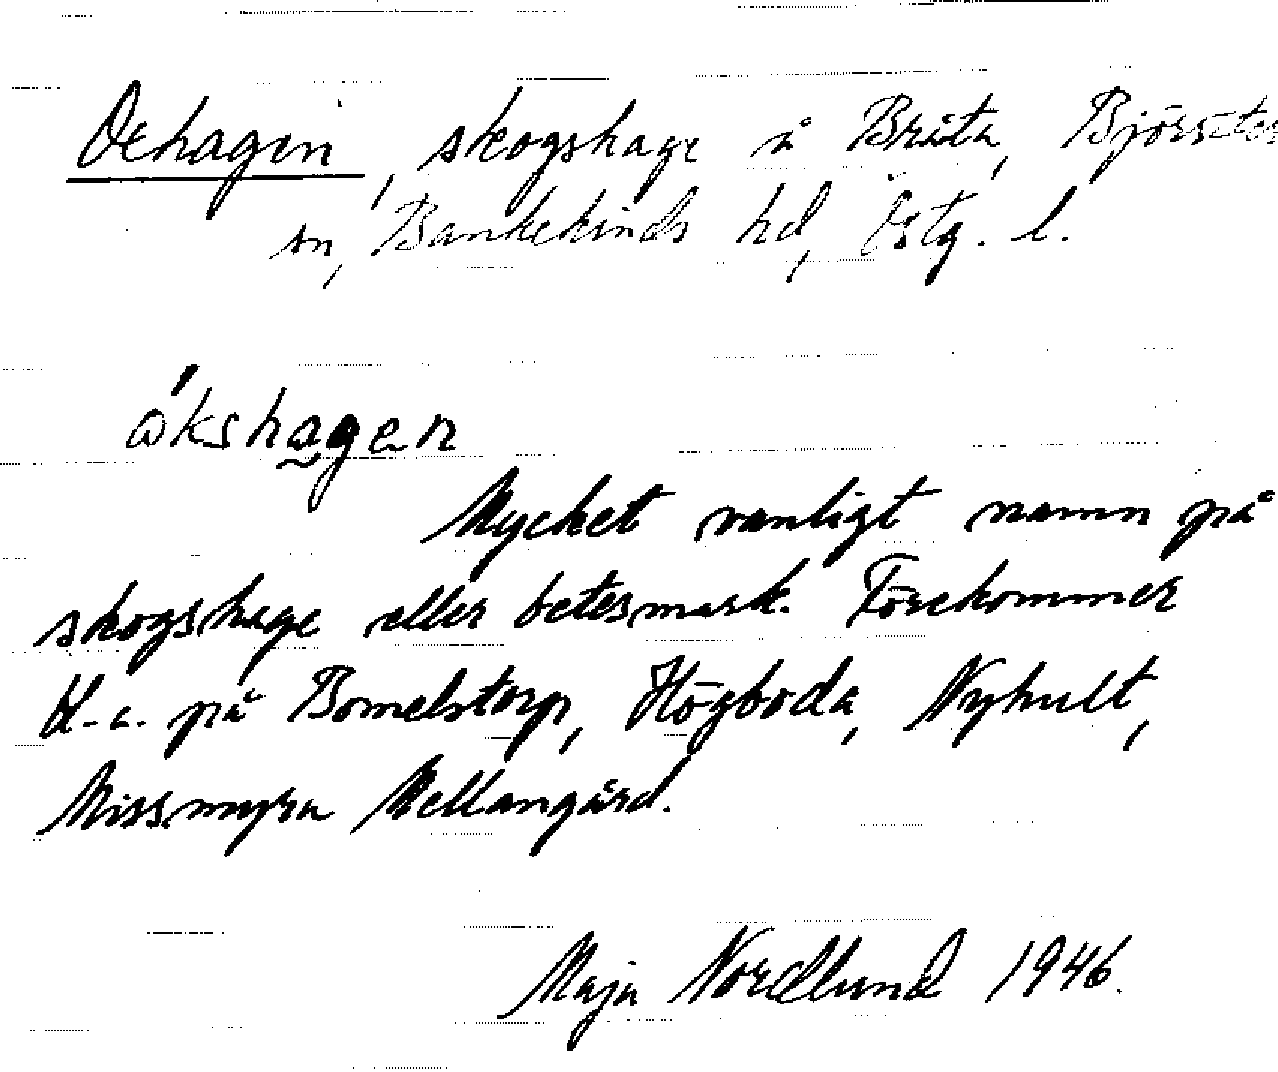 Oxhagen, skogshage å Bråta, Björsäter
sn, Bankekinds hd, Östg. l.
Mycket vanligt namn på
skogshage eller betesmark. Förekommer
bl. a. på Bomelstorp, Högboda, Nyhult,
Missmyra Mellangård.
Maja Nordlund 1946.